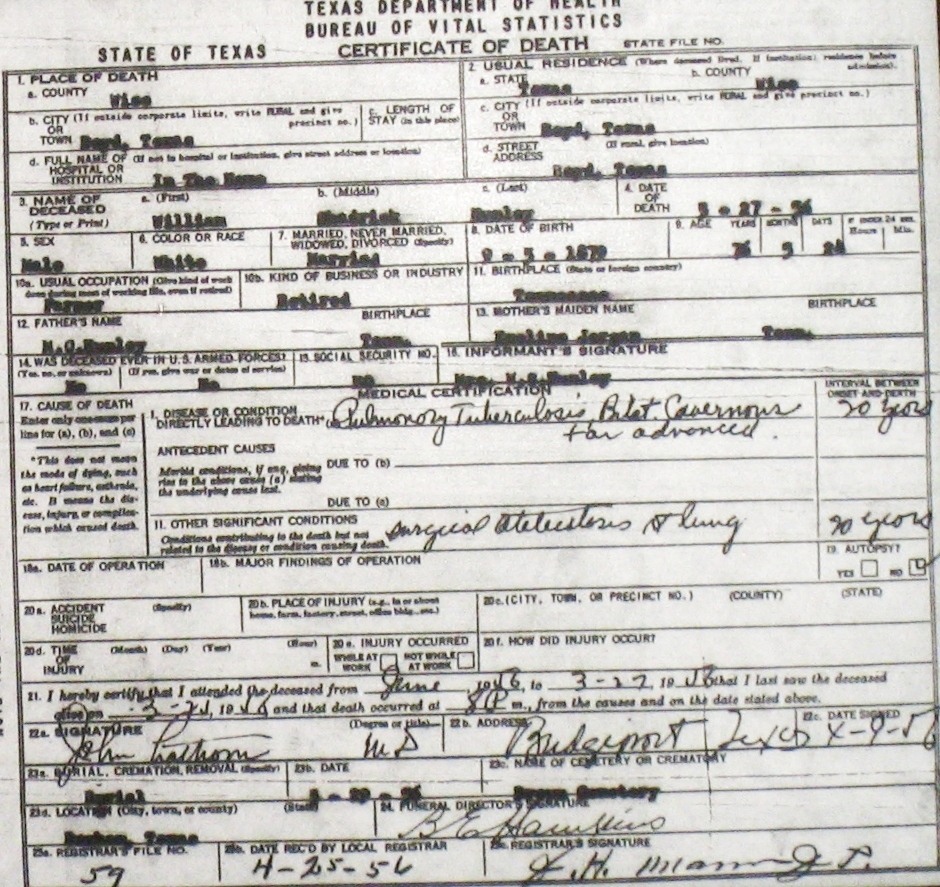 TEXAS DEPARTMENT OF HEALTH
BUREAU OF VITAL STATISTICS
STATE OF TEXAS CERTIFICATE OF DEATH STATE FILE NO.
1. PLACE OF DEATH
a. COUNTY
Wise
2. USUAL RESIDENCE (Where deceased lived. If institution: residence before admission).
a. STATE Texas b. COUNTY Wise
b. CITY (If outside corporate limits, write RURAL and give precinct no.)
OR
TOWN Boyd, Texas
c. LENGTH OF
STAY (in this place)
c. CITY (If outside corporate limits, write RURAL and give precinct no.)
OR
TOWN Boyd, Texas
d. FULL NAME OF (If not in hospital or institution, give street address or location)
HOSPITAL OR
INSTITUTION In The Home
d. STREET (If rural, give location)
ADDRESS Boyd, Texas
3. NAME OF
DECEASED
(Type or Print)
a. (First) b. (Middle) c. (Last)
William Shadrick
4. DATE
OF
DEATH 3 - 27 - 56
5. SEX
Male
6. COLOR OR RACE
White
7. MARRIED, NEVER MARRIED,
WIDOWED, DIVORCED (Specify)
Married
8. DATE OF BIRTH
9 - 5 - 1879
9. AGE YEARS MONTHS DAYS IF UNDER 24 HRS.
Hours Min.
76
10a. USUAL OCCUPATION (Give kind of work
done during most of working life, even if retired)
Farmer
10b. KIND OF BUSINESS OR INDUSTRY
Retired
11. BIRTHPLACE (State or foreign country)
Tennessee
12. FATHER'S NAME BIRTHPLACE
Tenn.
13. MOTHER'S MAIDEN NAME BIRTHPLACE
Tenn.
14. WAS DECEASED EVER IN U.S. ARMED FORCES?
(Yes, no, or unknown) (If yes, give war or dates of service)
No No
15. SOCIAL SECURITY NO.
NO
16. INFORMANT'S SIGNATURE
Mrs.
MEDICAL CERTIFICATION
INTERVAL BETWEEN
ONSET AND DEATH
17. CAUSE OF DEATH
Enter only one cause per
line for (a), (b), and (c)
*This does not mean
the mode of dying, such
as heart failure, asthenia,
etc. It means the dis-
ease, injury, or complica-
tion which caused death.
1. DISEASE OR CONDITION
DIRECTLY LEADING TO DEATH* (a) Pulmonory Tuberculosis, Bilat. Cavernous 20 years
far advanced.
ANTECEDENT CAUSES
Morbid conditions, if any, giving
rise to the above cause (a) stating
the underlying cause last.
DUE TO (b)
DUE TO (c)
11. OTHER SIGNIFICANT CONDITIONS
Conditions contributing to the death but not
related to the disease or condition causing death.
Surgical lung 20 years
18a. DATE OF OPERATION
18b. MAJOR FINDINGS OF OPERATION
19. AUTOPSY?
YES NO
20a. ACCIDENT (Specify)
SUICIDE
HOMICIDE
20b. PLACE OF INJURY (e.g., in or about
home, farm, factory, street, office bldg., etc.)
20c. (CITY, TOWN, OR PRECINCT NO.) (COUNTY) (STATE)
20d. TIME (Month) (Day) (Year) (Hour)
OF
INJURY m.
20e. INJURY OCCURRED
WHILE AT
WORK
NOT WHILE
AT WORK
20f. HOW DID INJURY OCCUR?
21. I hereby certify that I attended the deceased from June, 19 , to 3-27, 19 56 that I last saw the deceased
alive on 3- , 19 56 and that death occurred at 8P m., from the causes and on the date stated above.
22a. SIGNATURE (Degree or title)
John MD
22b. ADDRESS
Bridgeport Texas
22c. DATE SIGNED
4-9-56
23a. BURIAL, CREMATION, REMOVAL (Specify)
Burial
23b. DATE
3 - 29 - 56
23c. NAME OF CEMETERY OR CREMATORY
Cemetery
23d. LOCATION (City, town, or county) (State)
Texas
24. FUNERAL DIRECTOR'S SIGNATURE
B E Hawkins
25a. REGISTRAR'S FILE NO.
59
25b. DATE REC'D BY LOCAL REGISTRAR
4-25-56
25c. REGISTRAR'S SIGNATURE
J. H.